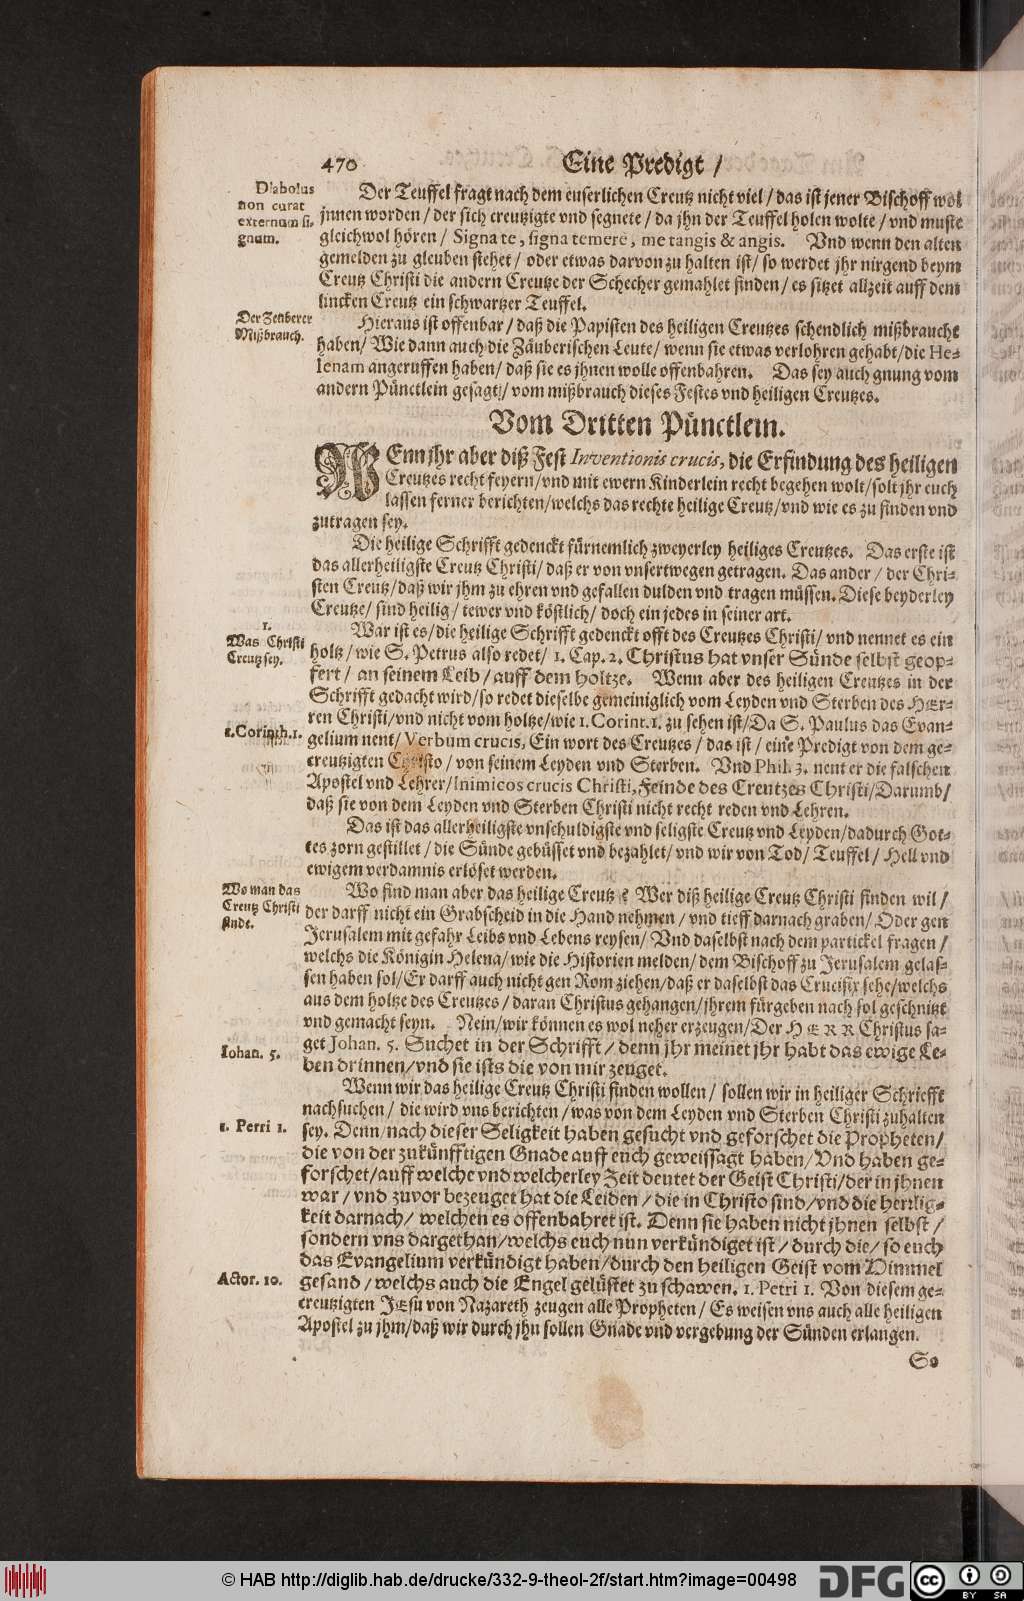 470 Eine Predigt /
Diabolus
non curat
externum si-
gnum.
Der Teuffel fragt nach dem euserlichen Creutz nicht viel / das ist jener Bischoff wol
jnnen worden / der sich creutzigte vnd segnete / da jhn der Teuffel holen wolte / vnd muste
gleichwol hören / Signa te, signa temere, me tangis & angis. Vnd wenn den alten
gemelden zu gleuben stehet / oder etwas darvon zu halten ist / so werdet jhr nirgend beym
Creutz Christi die andern Creutze der Schecher gemahlet finden / es sitzet allzeit auff dem
lincken Creutz ein schwartzer Teuffel.
Der Zeuberer
Mißbrauch.
Hieraus ist offenbar / daß die Papisten des heiligen Creutzes schendlich mißbraucht
haben / Wie dann auch die Zäuberischen Leute / wenn sie etwas verlohren gehabt / die He-
lenam angeruffen haben / daß sie es jhnen wolle offenbahren. Das sey auch gnung vom
andern Pünctlein gesagt / vom mißbrauch dieses Festes vnd heiligen Creutzes.
Vom Dritten Pünctlein.
WEnn jhr aber diß Fest Inventionis crucis, die Erfindung des heiligen
Creutzes recht feyern / vnd mit ewern Kinderlein recht begehen wolt / solt jhr euch
lassen ferner berichten / welchs das rechte heilige Creutz / vnd wie es zu finden vnd
zutragen sey.
Die heilige Schrifft gedenckt fürnemlich zweyerley heiliges Creutzes. Das erste ist
das allerheiligste Creutz Christi / daß er von vnsertwegen getragen. Das ander / der Chri-
sten Creutz / daß wir jhm zu ehren vnd gefallen dulden vnd tragen müssen. Diese beyderley
Creutze / sind heilig / tewer vnd köstlich / doch ein jedes in seiner art.
1.
Was Christi
Creutz sey.
War ist es / die heilige Schrifft gedenckt offt des Creutzes Christi / vnd nennet es ein
holtz / wie S. Petrus also redet / 1. Cap. 2. Christus hat vnser Sünde selbst geop-
fert / an seinem Leib / auff dem holtze. Wenn aber des heiligen Creutzes in der
Schrifft gedacht wird / so redet dieselbe gemeiniglich vom Leyden vnd Sterben des HEr-
ren Christi / vnd nicht vom holtze / wie 1. Corint. 1. zu sehen ist / Da S. Paulus das Evan-
1. Corinth. 1.
gelium nent / Verbum crucis, Ein wort des Creutzes / das ist / eine Predigt von dem ge-
creutzigten Christo / von seinem Leyden vnd Sterben. Vnd Phil. 3. nent er die falschen
Apostel vnd Lehrer / Inimicos crucis Christi, Feinde des Creutzes Christi / Darumb /
daß sie von dem Leyden vnd Sterben Christi nicht recht reden vnd Lehren.
Das ist das allerheiligste vnschuldigste vnd seligste Creutz vnd Leyden / dadurch Got-
tes zorn gestillet / die Sünde gebüsset vnd bezahlet / vnd wir von Tod / Teuffel / Hell vnd
ewigem verdamnis erlöset werden.
Wo man das
Creutz Christi
findt.
Wo find man aber das heilige Creutz ? Wer diß heilige Creutz Christi finden wil /
der darff nicht ein Grabscheid in die Hand nehmen / vnd tieff darnach graben / Oder gen
Jerusalem mit gefahr Leibs vnd Lebens reysen / Vnd daselbst nach dem partickel fragen /
welchs die Königin Helena / wie die Historien melden / dem Bischoff zu Jerusalem gelas-
sen haben sol / Er darff auch nicht gen Rom ziehen / daß er daselbst das Crucifix sehe / welchs
aus dem holtze des Creutzes / daran Christus gehangen / jhrem fürgeben nach sol geschnitzt
vnd gemacht seyn. Nein / wir können es wol neher erzeugen / Der HERR Christus sa-
Johan. 5.
get Johan. 5. Suchet in der Schrifft / denn jhr meinet jhr habt das ewige Le-
ben drinnen / vnd sie ists die von mir zeuget.
Wenn wir das heilige Creutz Christi finden wollen / sollen wir in heiliger Schriefft
nachsuchen / die wird vns berichten / was von dem Leyden vnd Sterben Christi zuhalten
1. Petri 1.
sey. Denn / nach dieser Seligkeit haben gesucht vnd geforschet die Propheten /
die von der zukünfftigen Gnade auff euch geweissagt haben / Vnd haben ge-
forschet / auff welche vnd welcherley Zeit deutet der Geist Christi / der in jhnen
war / vnd zuvor bezeuget hat die Leiden / die in Christo sind / vnd die herrlig-
keit darnach / welchen es offenbahret ist. Denn sie haben nicht jhnen selbst /
sondern vns dargethan / welchs euch nun verkündiget ist / durch die / so euch
das Evangelium verkündigt haben / durch den heiligen Geist vom Himmel
Actor. 10.
gesand / welchs auch die Engel gelüstet zu schawen. 1. Petri 1. Von diesem ge-
creutzigten JEsu von Nazareth zeugen alle Propheten / Es weisen vns auch alle heiligen
Apostel zu jhm / daß wir durch jhn sollen Gnade vnd vergebung der Sünden erlangen.
So
© HAB http://diglib.hab.de/drucke/332-9-theol-2f/start.htm?image=00498
DFG
CC BY SA